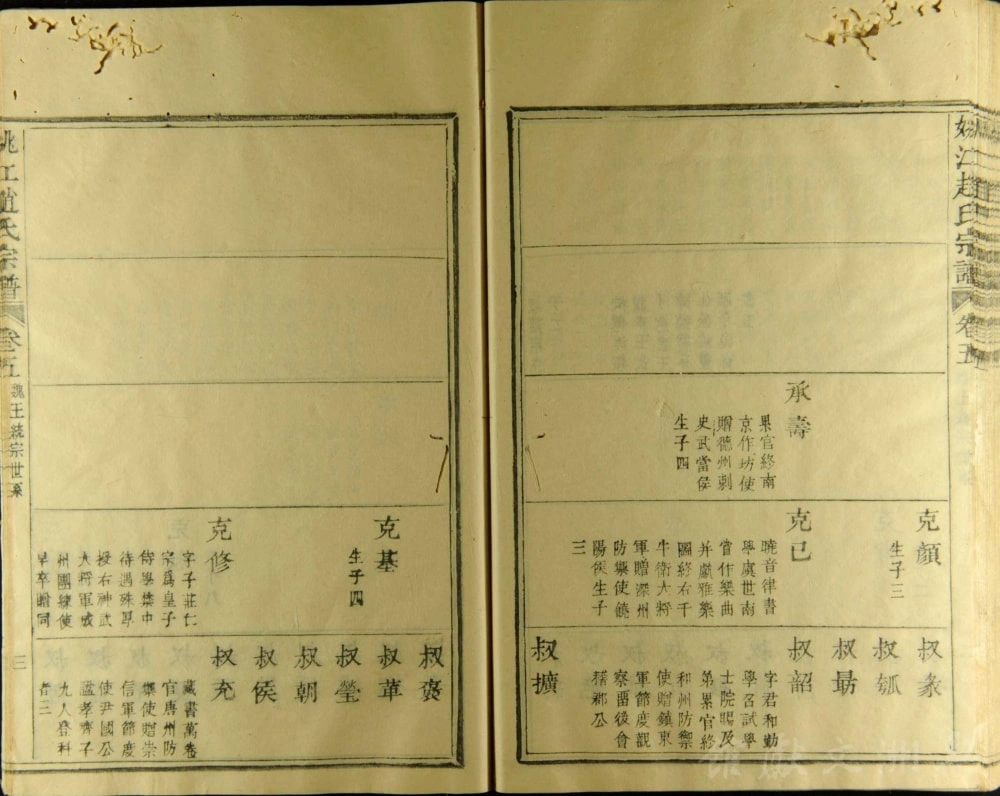 姚江趙氏宗譜
卷五
承壽
累官終南
京作坊使
贈德州刺
史武當侯
生子四
克顏
生子三
克己
曉音律書
學虞世南
嘗作樂曲
并獻雅樂
圖終右千
牛衛大將
軍贈深州
防禦使饒
陽侯生子
三
叔彖
叔瓠
叔最
叔韶
字君和勤
學召試學
士院賜及
第累官終
和州防禦
使贈鎮東
軍節度觀
察留後會
稽郡公
叔擴
克基
生子四
克修
字子莊仁
宗爲皇子
侍學禁中
待遇殊厚
授右神武
大將軍成
州團練使
早卒贈同
叔褒
叔華
叔瑩
叔朝
叔侯
叔充
藏書萬卷
官唐州防
禦使贈崇
信軍節度
使尹國公
諡孝齊子
九人登科
者三
姚江趙氏宗譜
卷五
魏王統宗世系
三